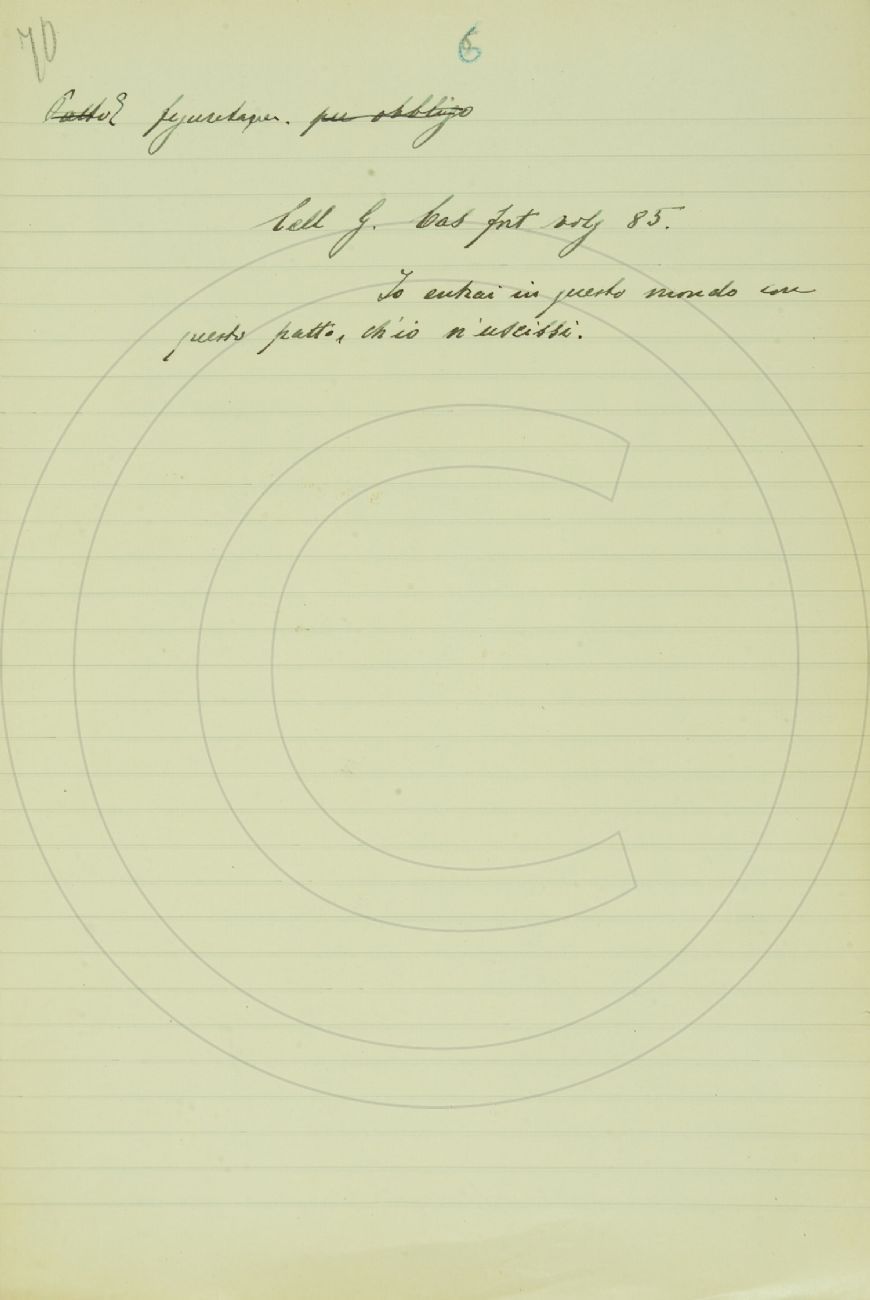 70
6
Patto E figuratam. per obbligo
Cell G. Cas fort volg 85.
Io entrai in questo mondo con
questo patto, ch'io n'uscissi.